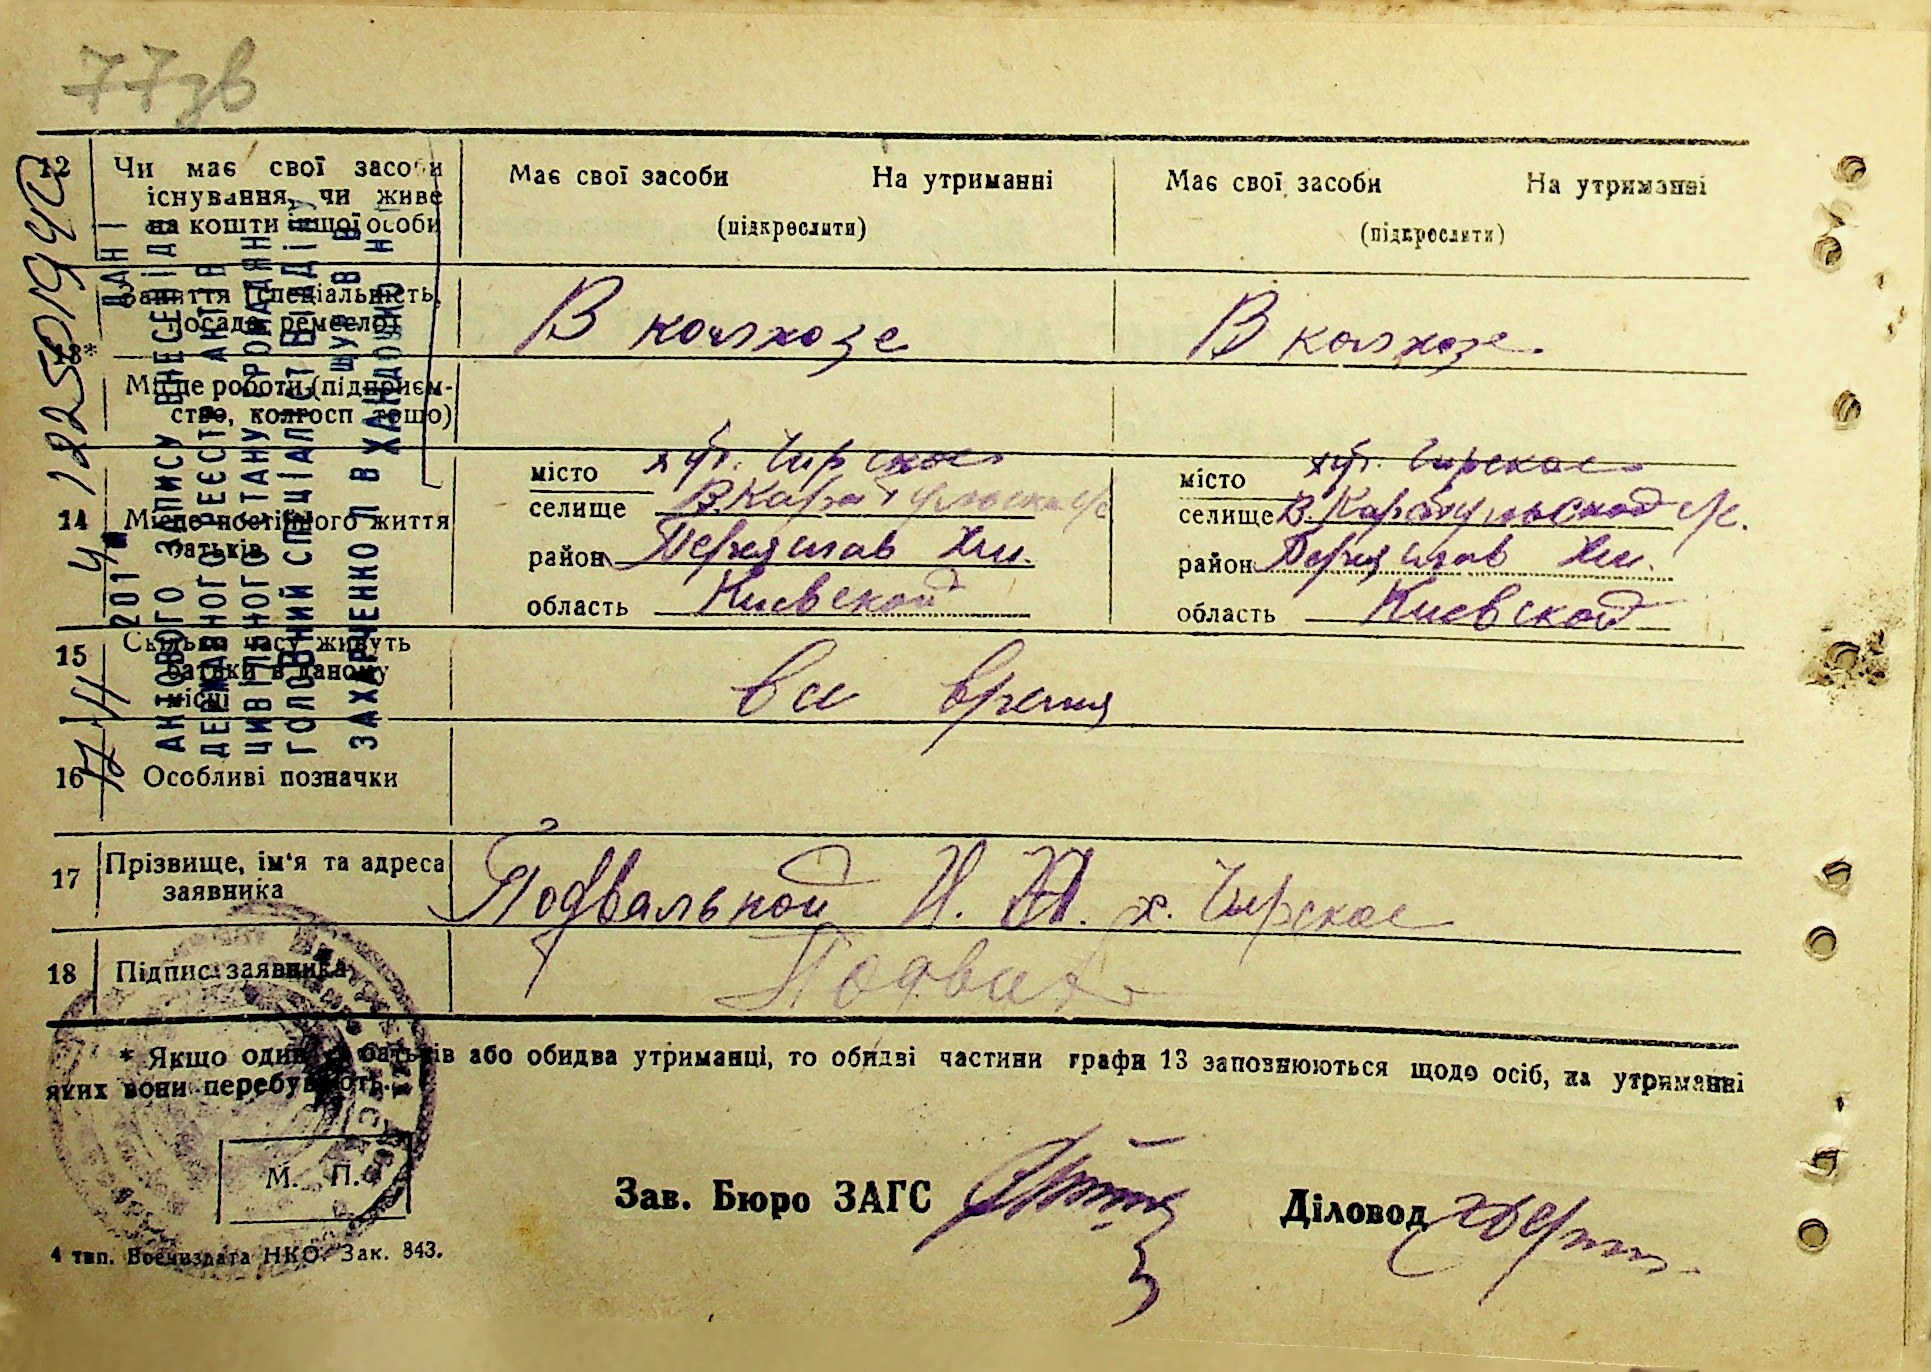 77зв
12 Чи має свої засоби
існування, чи живе
на кошти іншої особи
Має свої засоби На утриманні
(підкреслити)
Має свої засоби На утриманні
(підкреслити)
13*
Заняття (спеціальність,
посада, ремесло)
В колхозе
В колхозе
Місце роботи (підприєм-
ство, колгосп тощо)
14 Місце постійного життя
батьків
місто хут. Чирское
селище В Каратульском с/с
район Переяслав Хм.
область Киевской
місто хут. Чирское
селище В. Каратульской с/с.
район Переяслав Хм.
область Киевской
15 Скільки часу живуть
батьки в даному
місці
все время
16 Особливі позначки
17 Прізвище, ім'я та адреса
заявника
Подвальной Н. х. Чирское
18 Підпис заявника
* Якщо один з батьків або обидва утриманці, то обидві частини графи 13 заповнюються щодо осіб, на утриманні
яких вони перебувають.
М. П.
Зав. Бюро ЗАГС
Діловод
4 тип. Воениздата НКО. Зак. 843.
ДАНІ
АКТОВОГО ЗАПИСУ ВНЕСЕНІ ДО
ДЕРЖАВНОГО РЕЄСТРУ АКТІВ
ЦИВІЛЬНОГО СТАНУ ГРОМАДЯН
ГОЛОВНИЙ СПЕЦІАЛІСТ ВІДДІЛУ
ЗАХАРЧЕНКО Л В
201